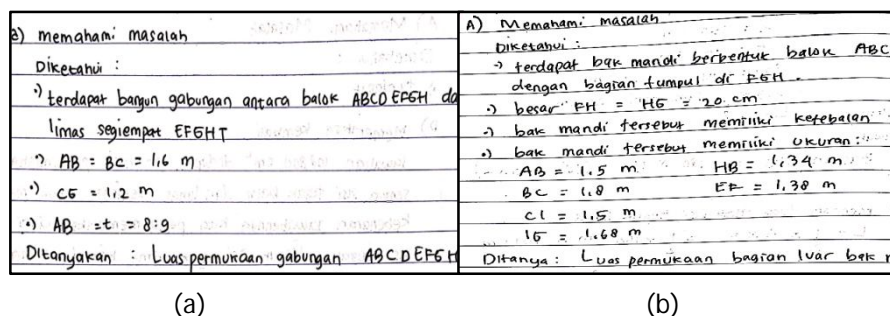 a) memahami masalah
Diketahui :
•) terdapat bangun gabungan antara balok ABCDEFGH da
limas segiempat EFGHT
•) AB = BC = 1,6 m
•) CG = 1,2 m
•) AB = t = 8:9
Ditanyakan : Luas permukaan gabungan ABCDEFGH
(a)
A) Memahami masalah
Diketahui :
-) terdapat bak mandi berbentuk balok ABC
dengan bagian tumpul di FGH.
•) besar FH = HG = 20 cm
-) bak mandi tersebut memiliki ketebalan
•) bak mandi tersebut memiliki ukuran :
AB = 1.5 m HB = 1,34 m
BC = 1,8 m EF = 1,38 m
CI = 1,5 m
IG = 1.68 m
Ditanya : Luas permukaan bagian luar bak
(b)